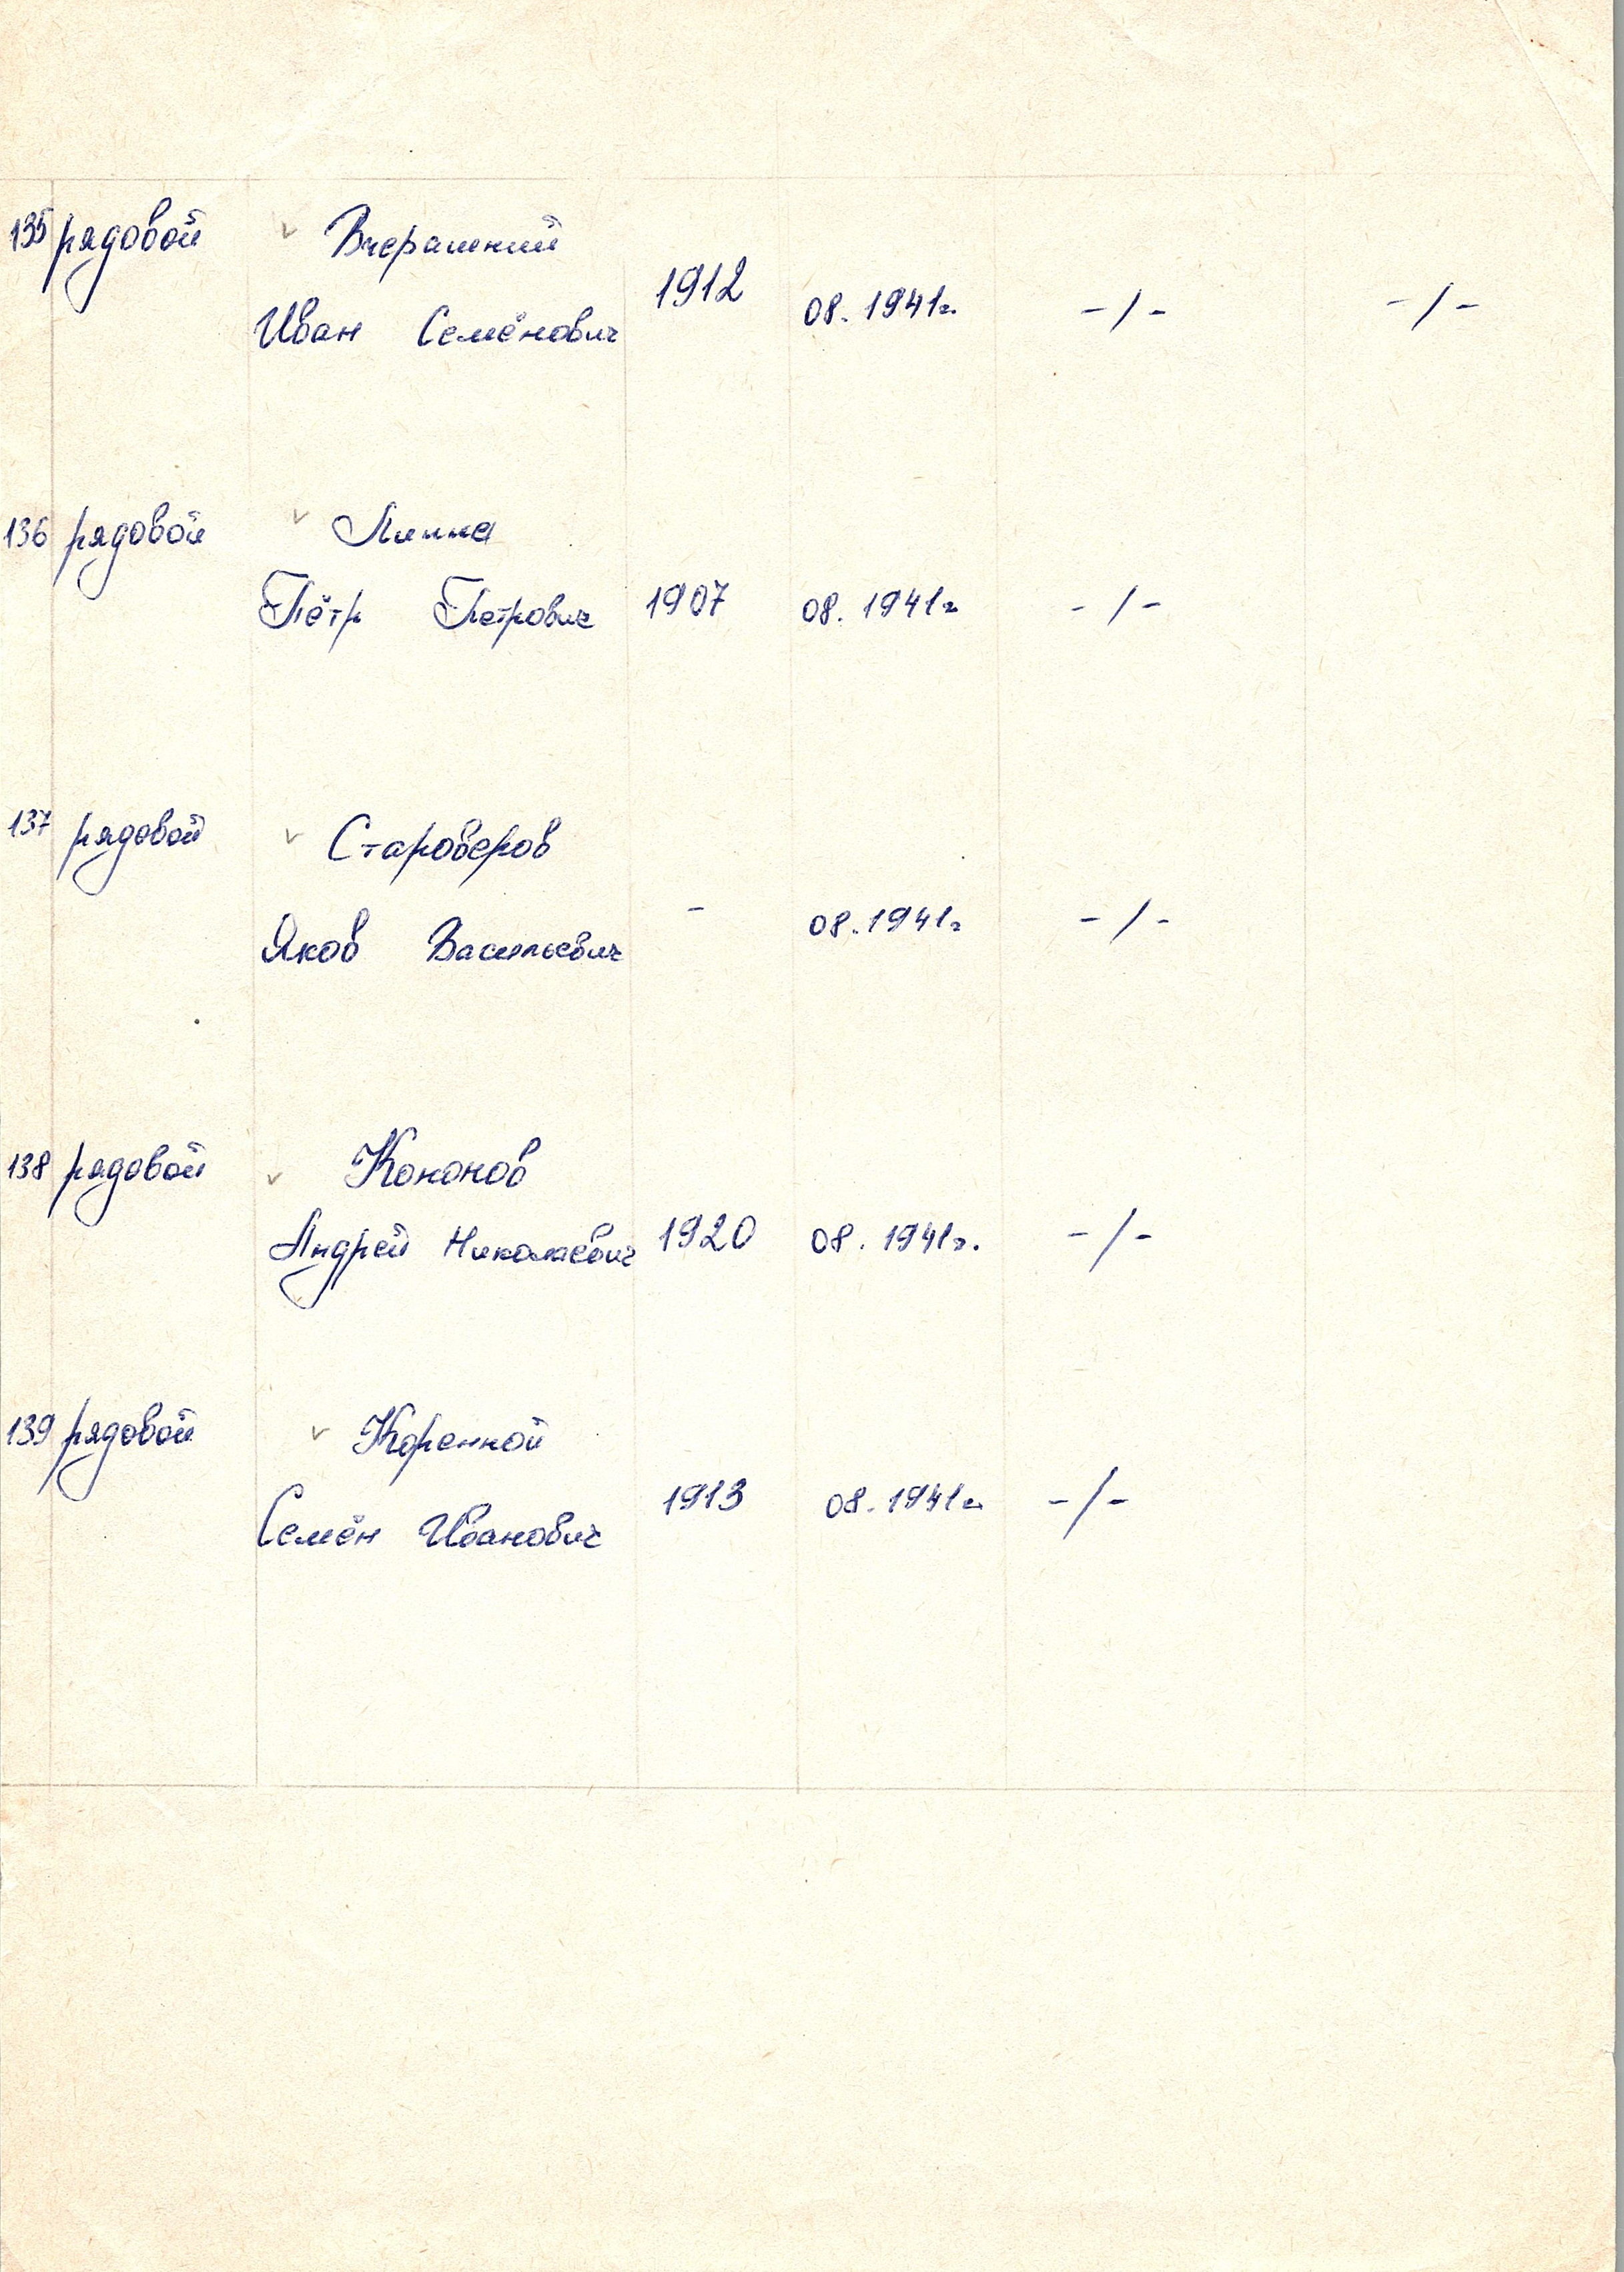 135 рядовой ✓ Вчерашний
Иван Семёнович 1912 08.1941г. -/- -/-
136 рядовой ✓ Липка
Пётр Петрович 1907 08.1941г -/-
137 рядовой ✓ Староверов
Яков Васильевич - 08.1941г -/-
138 рядовой ✓ Кононов
Андрей Николаевич 1920 08.1941г. -/-
139 рядовой ✓ Коренной
Семён Иванович 1913 08.1941г. -/-